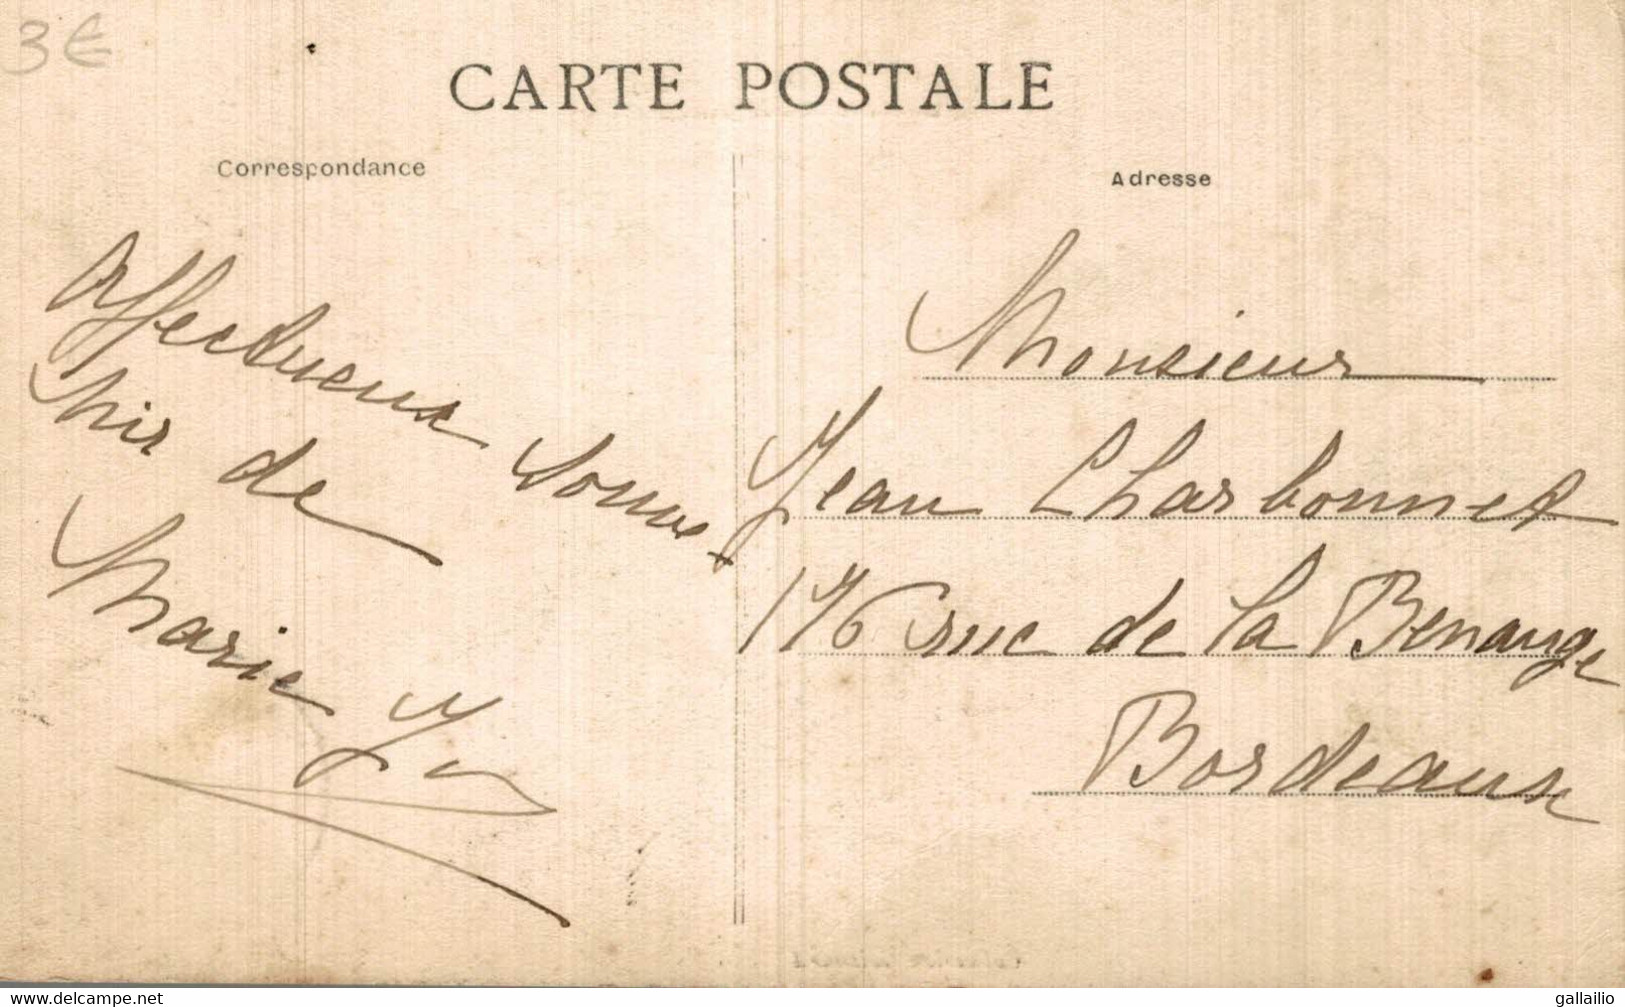 3€
CARTE POSTALE
Correspondance
Affectueux Souve-
nir de
Marie
Adresse
Monsieur
Jean Charbonnet
176 rue de la Benauge
Bordeaux
delcampe.net
gallailio